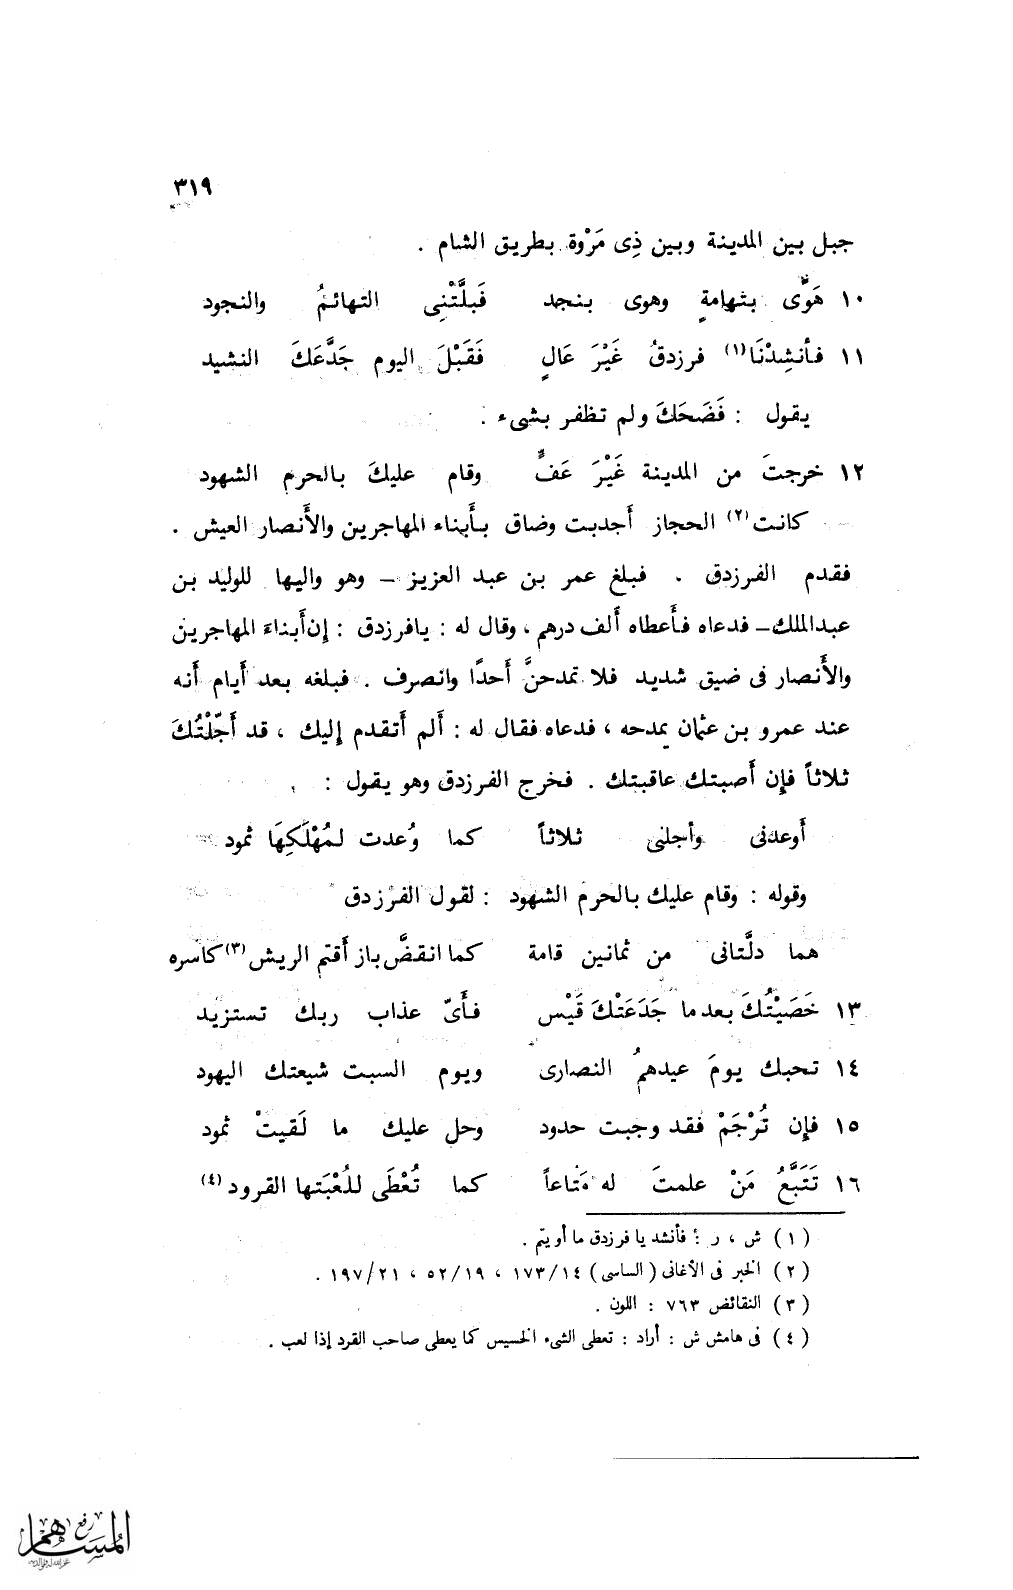 ٣١٩
جبل بين المدينة وبين ذِى مَرْوة بطريق الشام .
١٠ هَوًى بتهامةٍ وهوى بنجد فَبلَّتْنِى التهائمُ والنجود
١١ فأنشِدْنَا (١) فرزدقُ غَيْرَ عَالٍ فَقَبْلَ اليوم جَدَّعَكَ النشيد
يقول : فَضَحَكَ ولم تظفر بشىء .
١٢ خرجتَ من المدينة غَيْرَ عَفٍّ وقام عليكَ بالحرم الشهود
كانت (٢) الحجاز أجدبت وضاق بأبناء المهاجرين والأنصار العيش .
فقدم الفرزدق . فبلغ عمر بن عبد العزيز – وهو واليها للوليد بن
عبدالملك – فدعاه فأعطاه ألف درهم ، وقال له : يافرزدق : إن أبناءَ المهاجرين
والأنصار فى ضيق شديد فلا تمدحنَّ أحدًا وانصرف . فبلغه بعد أيام أنه
عند عمرو بن عثمان يمدحه ، فدعاه فقال له : ألم أتقدم إليك ، قد أجّلْتُكَ
ثلاثاً فإن أصبتك عاقبتك . فخرج الفرزدق وهو يقول :
أوعدنى وأجلنى ثلاثاً كما وُعدت لمُهْلَكِهَا ثمود
وقوله : وقام عليك بالحرم الشهود : لقول الفرزدق
هما دلَّتانى من ثمانين قامة كما انقضَّ باز أقتم الريش (٣) كاسره
١٣ خَصَيْتُكَ بعدما جَدَعَتْكَ قَيْس فأىّ عذاب ربك تستزيد
١٤ تحبك يومَ عيدهمُ النصارى ويوم السبت شيعتك اليهود
١٥ فإن تُرْجَمْ فقد وجبت حدود وحل عليك ما لَقيتْ ثمود
١٦ تَتَبَّعُ مَنْ علمتَ له مَتاعاً كما تُعْطَى للُعْبَتها القرود (٤)
(١) ش ، ر : فأنشد يا فرزدق ما أو يتم .
(٢) الخبر فى الأغانى ( الساسى ) ١٤/١٧٣ ، ١٩/٥٢ ، ٢١/١٩٧ .
(٣) النقائض ٧٦٣ : اللون .
(٤) فى هامش ش : أراد : تعطى الشىء الخسيس كما يعطى صاحب القرد إذا لعب .
رفع
المساهم